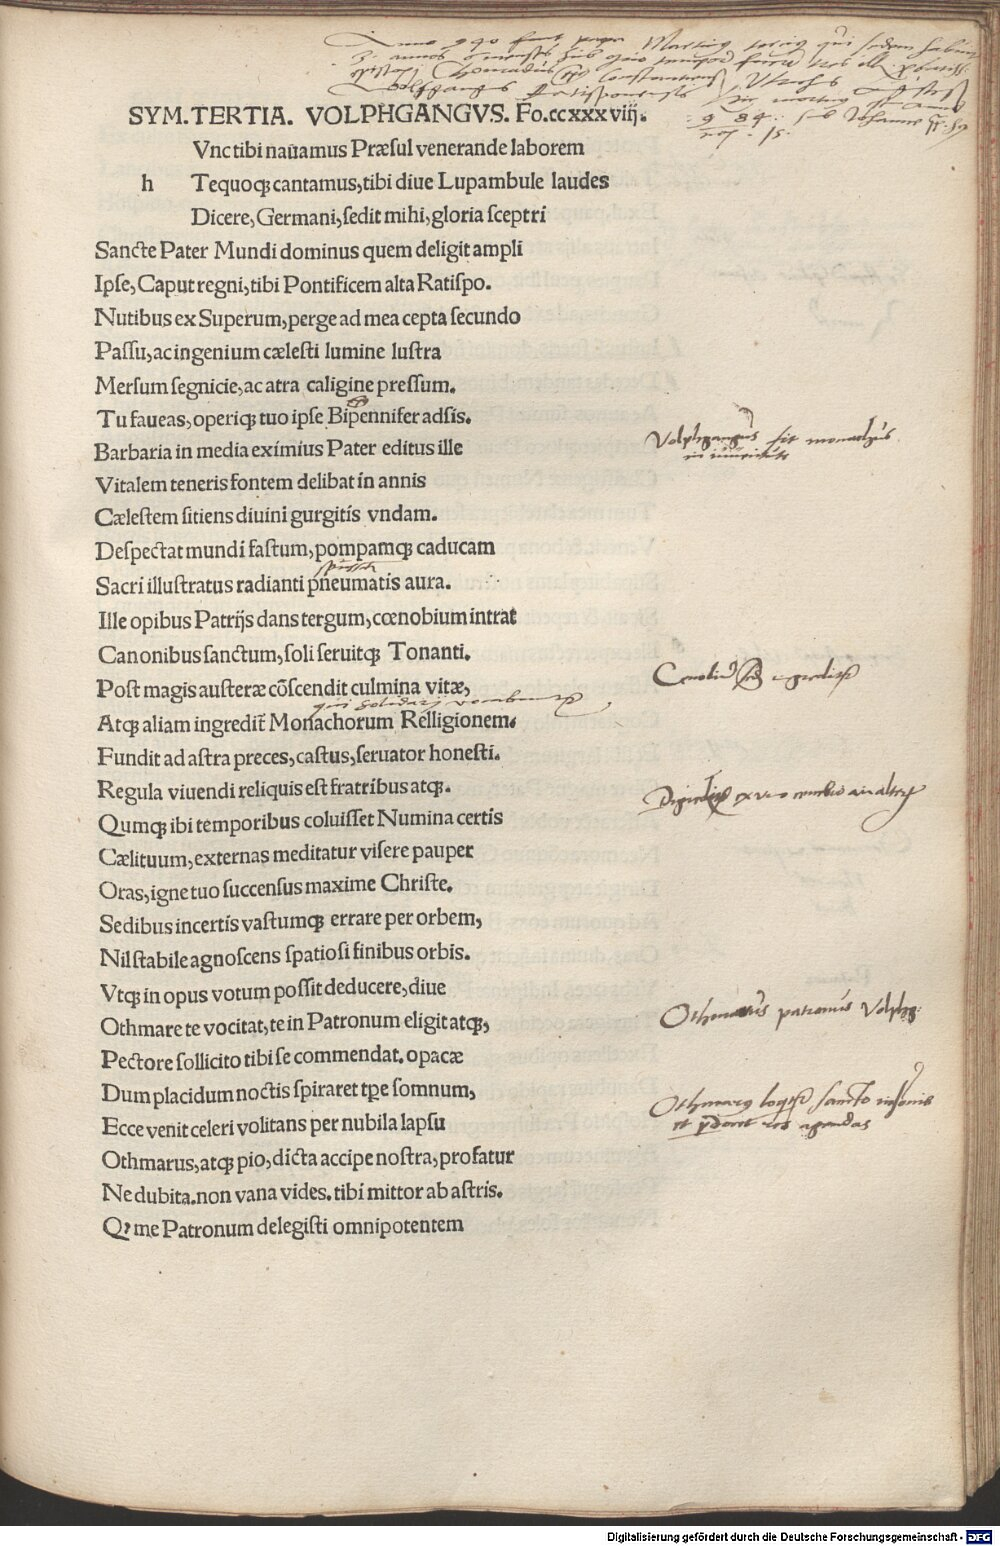 Anno 940 fuit papa Martinus tercius qui sedem habuit
3 annos
Constantiensis
Wolffgangus Ratisponensis
9 84. sub Johanne
SYM. TERTIA. VOLPHGANGVS. Fo. ccxxxviiij.
Vnc tibi nauamus Præsul venerande laborem
h Tequoqꝫ cantamus, tibi diue Lupambule laudes
Dicere, Germani, sedit mihi, gloria sceptri
Sancte Pater Mundi dominus quem deligit ampli
Ipse, Caput regni, tibi Pontificem alta Ratispo.
Nutibus ex Superum, perge ad mea cepta secundo
Passu, ac ingenium cælesti lumine lustra
Mersum segnicie, ac atra caligine pressum.
Tu faueas, operiqꝫ tuo ipse Bipennifer adsis.
Barbaria in media eximius Pater editus ille
Volphgangus fit monachus
Vitalem teneris fontem delibat in annis
Cælestem sitiens diuini gurgitis vndam.
Despectat mundi fastum, pompamqꝫ caducam
Sacri illustratus radianti pneumatis aura.
Ille opibus Patrijs dans tergum, cœnobium intrat
Canonibus sanctum, soli seruitqꝫ Tonanti.
Post magis austeræ cōscendit culmina vitæ,
Atqꝫ aliam ingredit᷑ Monachorum Relligionem.
Fundit ad astra preces, castus, seruator honesti.
Regula viuendi reliquis est fratribus atqꝫ.
Qumqꝫ ibi temporibus coluisset Numina certis
Cælituum, externas meditatur visere pauper
Oras, igne tuo succensus maxime Christe.
Sedibus incertis vastumqꝫ errare per orbem,
Nil stabile agnoscens spatiosi finibus orbis.
Vtqꝫ in opus votum possit deducere, diue
Othmare te vocitat, te in Patronum eligit atqꝫ,
Othmarus patronus Volphg:
Pectore sollicito tibi se commendat. opacæ
Dum placidum noctis spiraret tꝑe somnum,
Othmarus loquitur sancto
Ecce venit celeri volitans per nubila lapsu
Othmarus, atqꝫ pio, dicta accipe nostra, profatur
Ne dubita. non vana vides. tibi mittor ab astris.
Qꝫ me Patronum delegisti omnipotentem
Digitalisierung gefördert durch die Deutsche Forschungsgemeinschaft - DFG